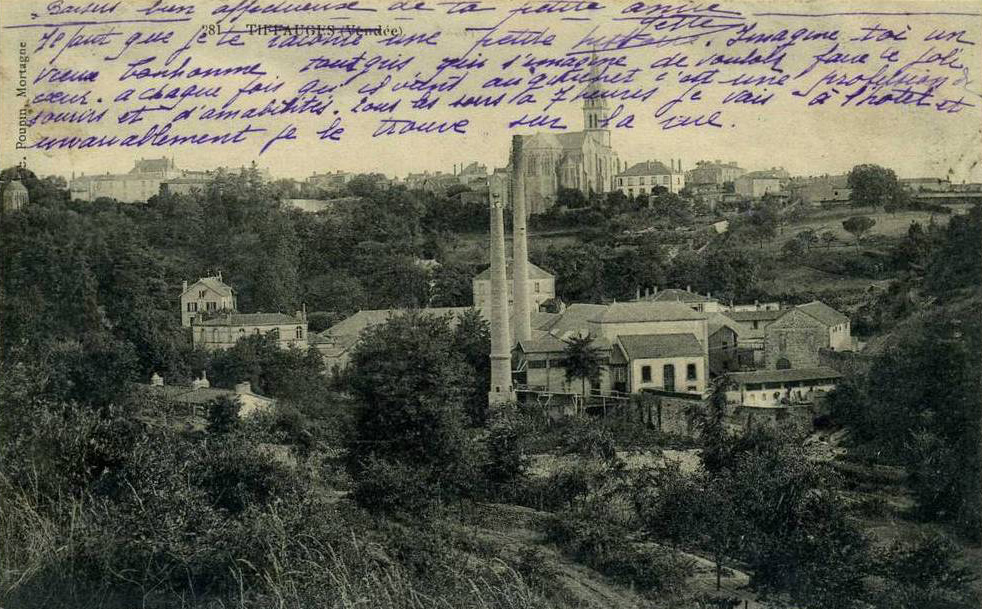 Baisers bien affectueux de ta petite amie
281 - TIFFAUGES (Vendée)
Il faut que je te raconte une petite histoire. Imagine toi un
vieux bonhomme tout gris qui s'imagine de vouloir faire le joli
cœur. a chaque fois qu'il vient au guichet c'est une profusion de
sourires et d'amabilités. Tous les soirs à 7 heures je vais à l'hotel et
invariablement je le trouve sur la rue.
Poupin, Mortagne